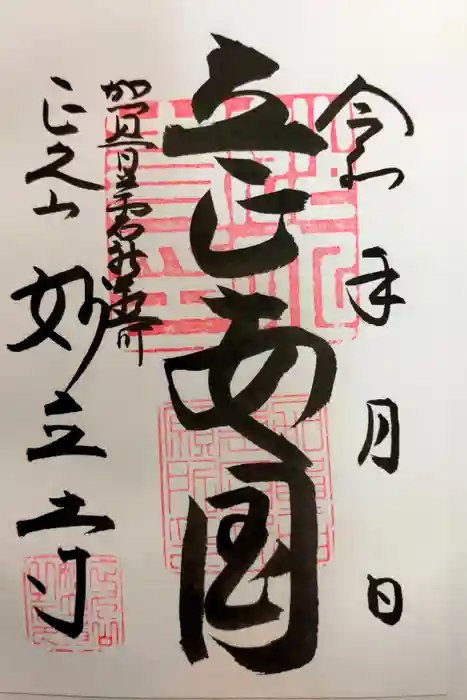 令和 年 月 日
立正安国
加賀百万石祈願所
正久山 妙立寺